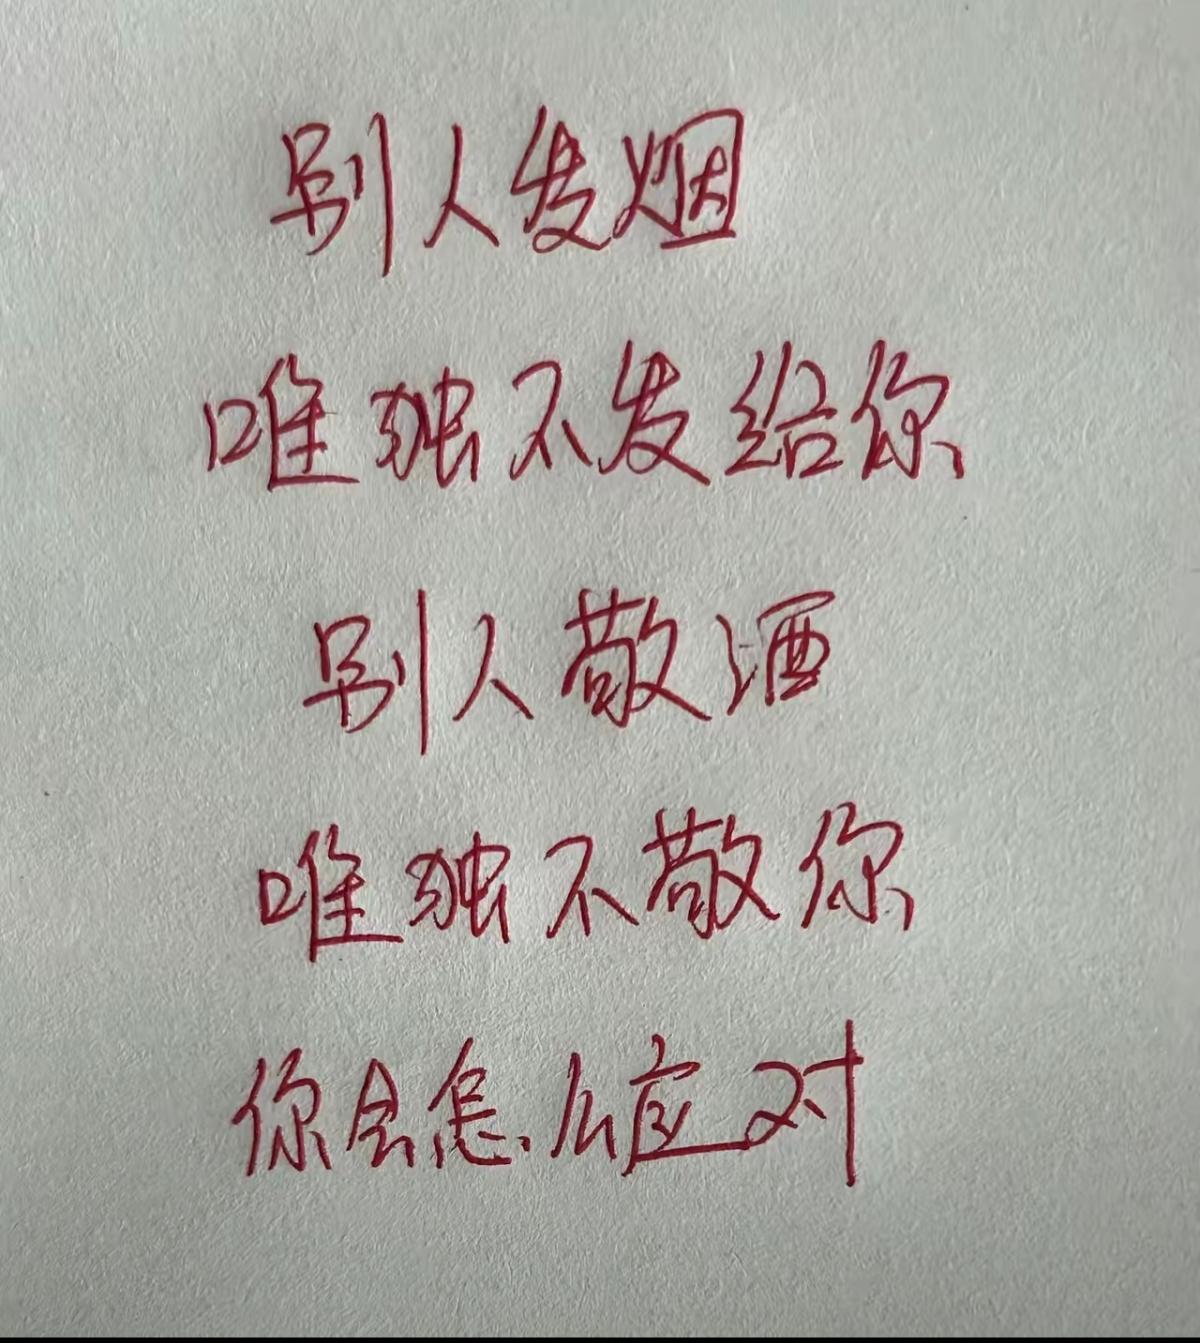 别人发烟
唯独不发给你
别人敬酒
唯独不敬你
你会怎么应对